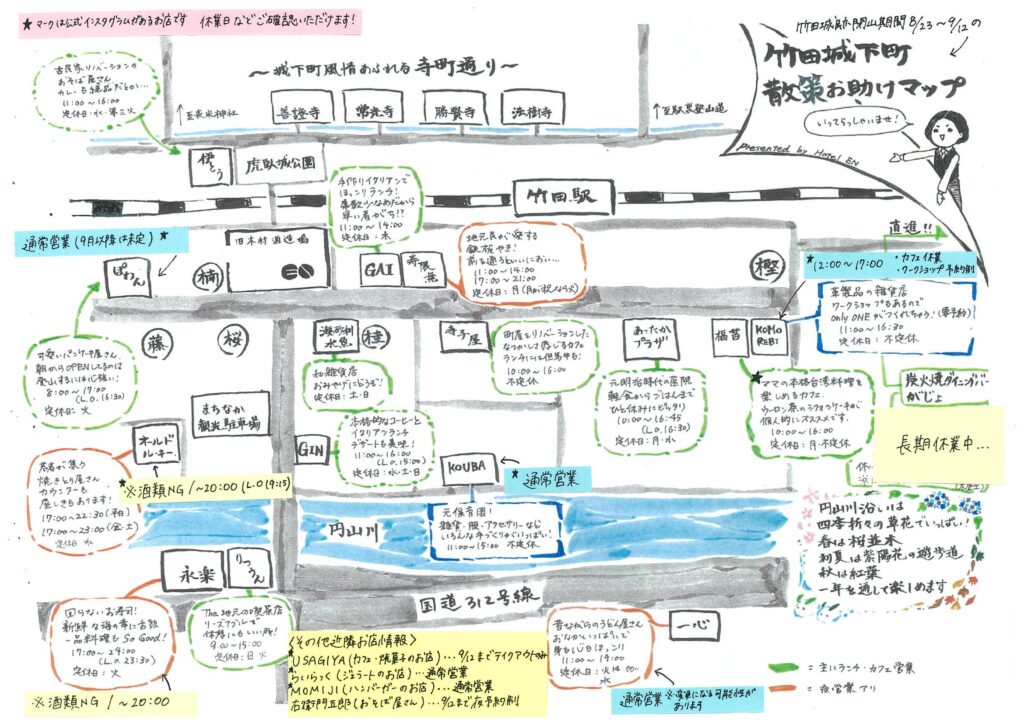 ★マークは公式インスタグラムがあるお店です 休業日などご確認いただけます!
竹田城跡閉山期間8/23〜9/12の
竹田城下町
散策お助けマップ
いってらっしゃいませ!
Presented by Hotel EN
〜城下町風情あふれる寺町通り〜
↑至表米神社
善證寺
常光寺
勝賢寺
法樹寺
↑至駅裏登山道
古民家リノベーションの
おそば屋さん
カレーも絶品だとか…
11:00〜16:00
定休日:水・第三火
伊とう
虎臥城公園
竹田駅
手作りイタリアンで
ほっこりランチ!
席数少なめだから
早い者がち!?
11:00〜14:00
定休日:木
地元民が愛する
鉄板やき!
前を通るといいにおい…
11:00〜14:00
17:00〜21:00
定休日:月(月が祝なら火)
直進!!
通常営業(9月以降は未定)★
ぽわん
楠
旧木村酒造場
EN
GAI
寿限無
樫
★12:00〜17:00 ・カフェ休業
・ワークショップ予約制
革製品の雑貨店
ワークショップもあるので
only ONEがつくれちゃう!(要予約)
11:00〜16:30
定休日:不定休
藤
桜
浪砂利
水魚
桂
寺子屋
あったか
プラザ
福苔
KOMO
REBI
可愛いパッケージ屋さん
朝からOPENしてるのは
登山するには心強い!
8:00〜17:00
(L.O.16:30)
定休日:火
和雑貨店
おみやげにどうぞ!
定休日:土・日
町屋をリノベーションした
なつかしさ感じるカフェ
ランチにも但馬牛も!
10:00〜16:00
不定休
元明治時代の医院
軽食からごはんまで
ひと休みにピッタリ
10:00〜16:45
(L.O.16:30)
定休日:月・水
★ママの本格台湾料理を
楽しめるカフェ
ウーロン茶のシフォンケーキが
個人的にオススメです
10:00〜16:00
定休日:月・不定休
炭火焼ダイニングバー
がじょ
長期休業中…
まちなか
観光駐車場
オールド
ルーキー
GIN
本格的なコーヒーと
イタリアンランチ
デザートも美味!
11:00〜16:00
(L.O.15:00)
定休日:水・土・日
KOUBA
★通常営業
若者が集う
焼きとり屋さん
カウンターも
座しきもあります!
17:00〜22:30(平日)
17:00〜23:00(金・土)
定休日 水
★※酒類NG/〜20:00(L.O.19:15)
円山川
元保育園!
雑貨・服・アクセサリーなど
いろんな手づくりがいっぱい!
11:00〜15:00 不定休
円山川沿いは
四季折々の草花でいっぱい!
春は桜並木
初夏は紫陽花の遊歩道
秋は紅葉
一年を通して楽しめます
永楽
りつうん
国道312号線
回らないお寿司!
新鮮な海の幸に舌鼓
一品料理もSo Good!
17:00〜24:00
(L.O.23:30)
定休日:火
※酒類NG/〜20:00
The 地元の喫茶店
リーズナブルで
休憩にもいい所!
9:00〜15:00
定休日:日・火
<その他近隣お店情報>
★USAGIYA(カフェ・焼菓子のお店)…9/12までテイクアウトのみ
★らいらっく(ジェラートのお店)…通常営業
★MOMIJI(ハンバーガーのお店)…通常営業
右衛門五郎(おそば屋さん)…9/12まで夜予約制
昔ながらのうどん屋さん
おなかいっぱいで
身も心もほっこり
11:00〜19:00
一心
通常営業※変更になる可能性が
あります
=主にランチ・カフェ営業
=夜営業アリ